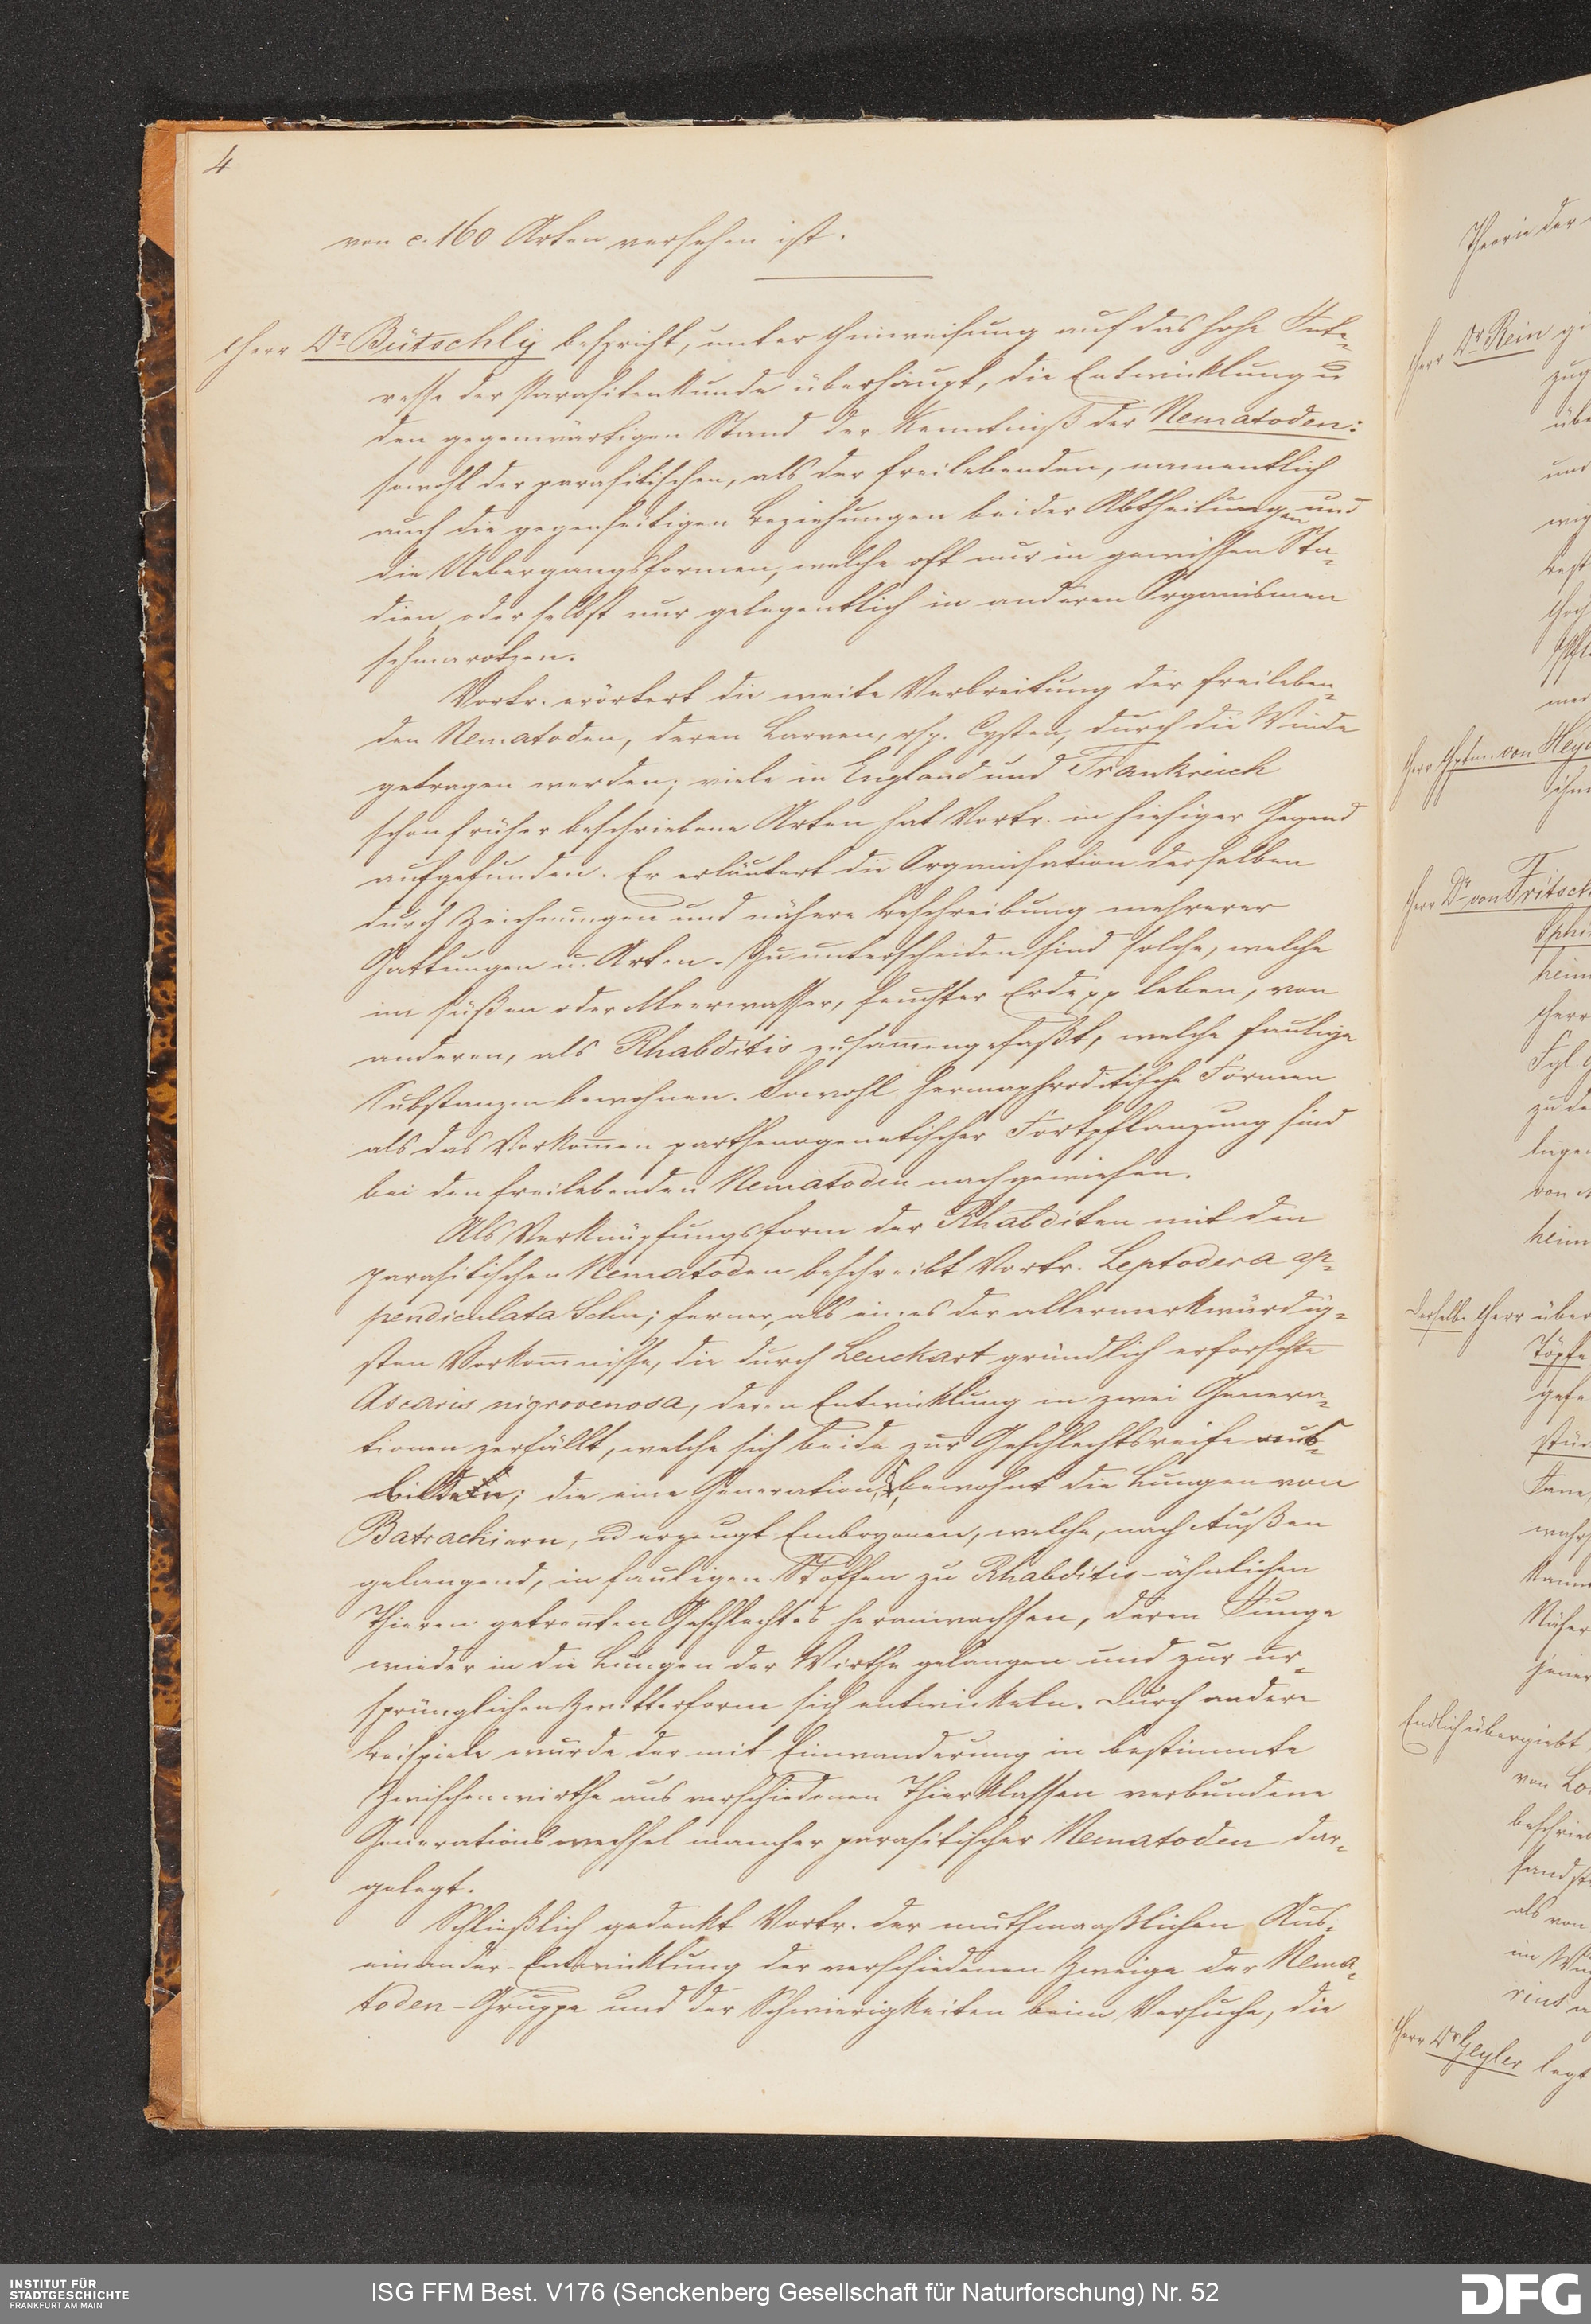 4
von c. 160 Arten versehen ist.
Herr Dr. Bütschly bespricht, unter Hinweisung auf das hohe Inte-
resse der Parasitenkunde überhaupt, die Entwicklung u
den gegenwärtigen Stand der Kenntniß der Nematoden:
sowohl der parasitischen, als der freilebenden, namentlich
auch die gegenseitigen Beziehungen beider Abtheilungen und
die Uebergangsformen, welche oft nur in gewissen Sta-
dien, oder selbst nur gelegentlich in anderen Organismen
schmarotzen.
Vortr. erörtert die weite Verbreitung der freileben-
den Nematoden, deren Larven, rsp. Cysten, durch die Winde
getragen werden; viele in England und Frankreich
schon früher beschriebene Arten hat Vortr. in hiesiger Gegend
aufgefunden. Er erläutert die Organisation derselben
durch Zeichnungen und nähere Beschreibung mehrerer
Gattungen u. Arten. Zu unterscheiden sind solche, welche
im süßen oder Meerwasser, feuchter Erde pp leben, von
anderen, als Rhabditis zusam̅engefaßt, welche faulige
Substanzen bewohnen. Sowohl hermaphroditische Formen
als das Vorkom̅en parthenogenetischer Fortpflanzung sind
bei den freilebenden Nematoden nachgewiesen.
Als Verknüpfungsform der Rhabditen mit den
parasitischen Nematoden beschreibt Vortr. Leptodera ap-
pendiculata Schn; ferner, als eines der allermerkwürdig-
sten Vorkom̅nisse, die durch Leuckart gründlich erforschte
Ascaris nigrovenosa, deren Entwicklung in zwei Genera-
tionen zerfällt, welche sich beide zur Geschlechtsreife aus-
bilden; die eine Generation, bewohnt die Lungen von
Batrachiern, u erzeugt Embryonen, welche, nach Außen
gelangend, in fauligen Stoffen zu Rhabditis-ähnlichen
Thieren getren̅ten Geschlechtes heranwachsen, deren Junge
wieder in die Lungen der Wirthe gelangen und zur ur-
sprünglichen Zwitterform sich entwickeln. Durch andere
Beispiele wurde der mit Einwanderung in bestimmte
Zwischenwirthe aus verschiedenen Thierklassen verbundene
Generationswechsel mancher parasitischer Nematoden dar-
gelegt.
Schließlich gedenkt Vortr. der muthmaaßlichen Aus-
einander-Entwicklung der verschiedenen Zweige der Nema-
toden-Gruppe und der Schwierigkeiten beim Versuche, die
Theorie der
Herr Dr. Rein
zug
übe
und
Herr Hptm. von Heyd
Herr Dr. von Fritsch
heim
Herr
zu de
von
heim
Derselbe Herr über
Töpfe
Endlich übergiebt
von Lo
als von
im
Herr Dr. Geyler legt
INSTITUT FÜR
STADTGESCHICHTE
FRANKFURT AM MAIN
ISG FFM Best. V176 (Senckenberg Gesellschaft für Naturforschung) Nr. 52
DFG